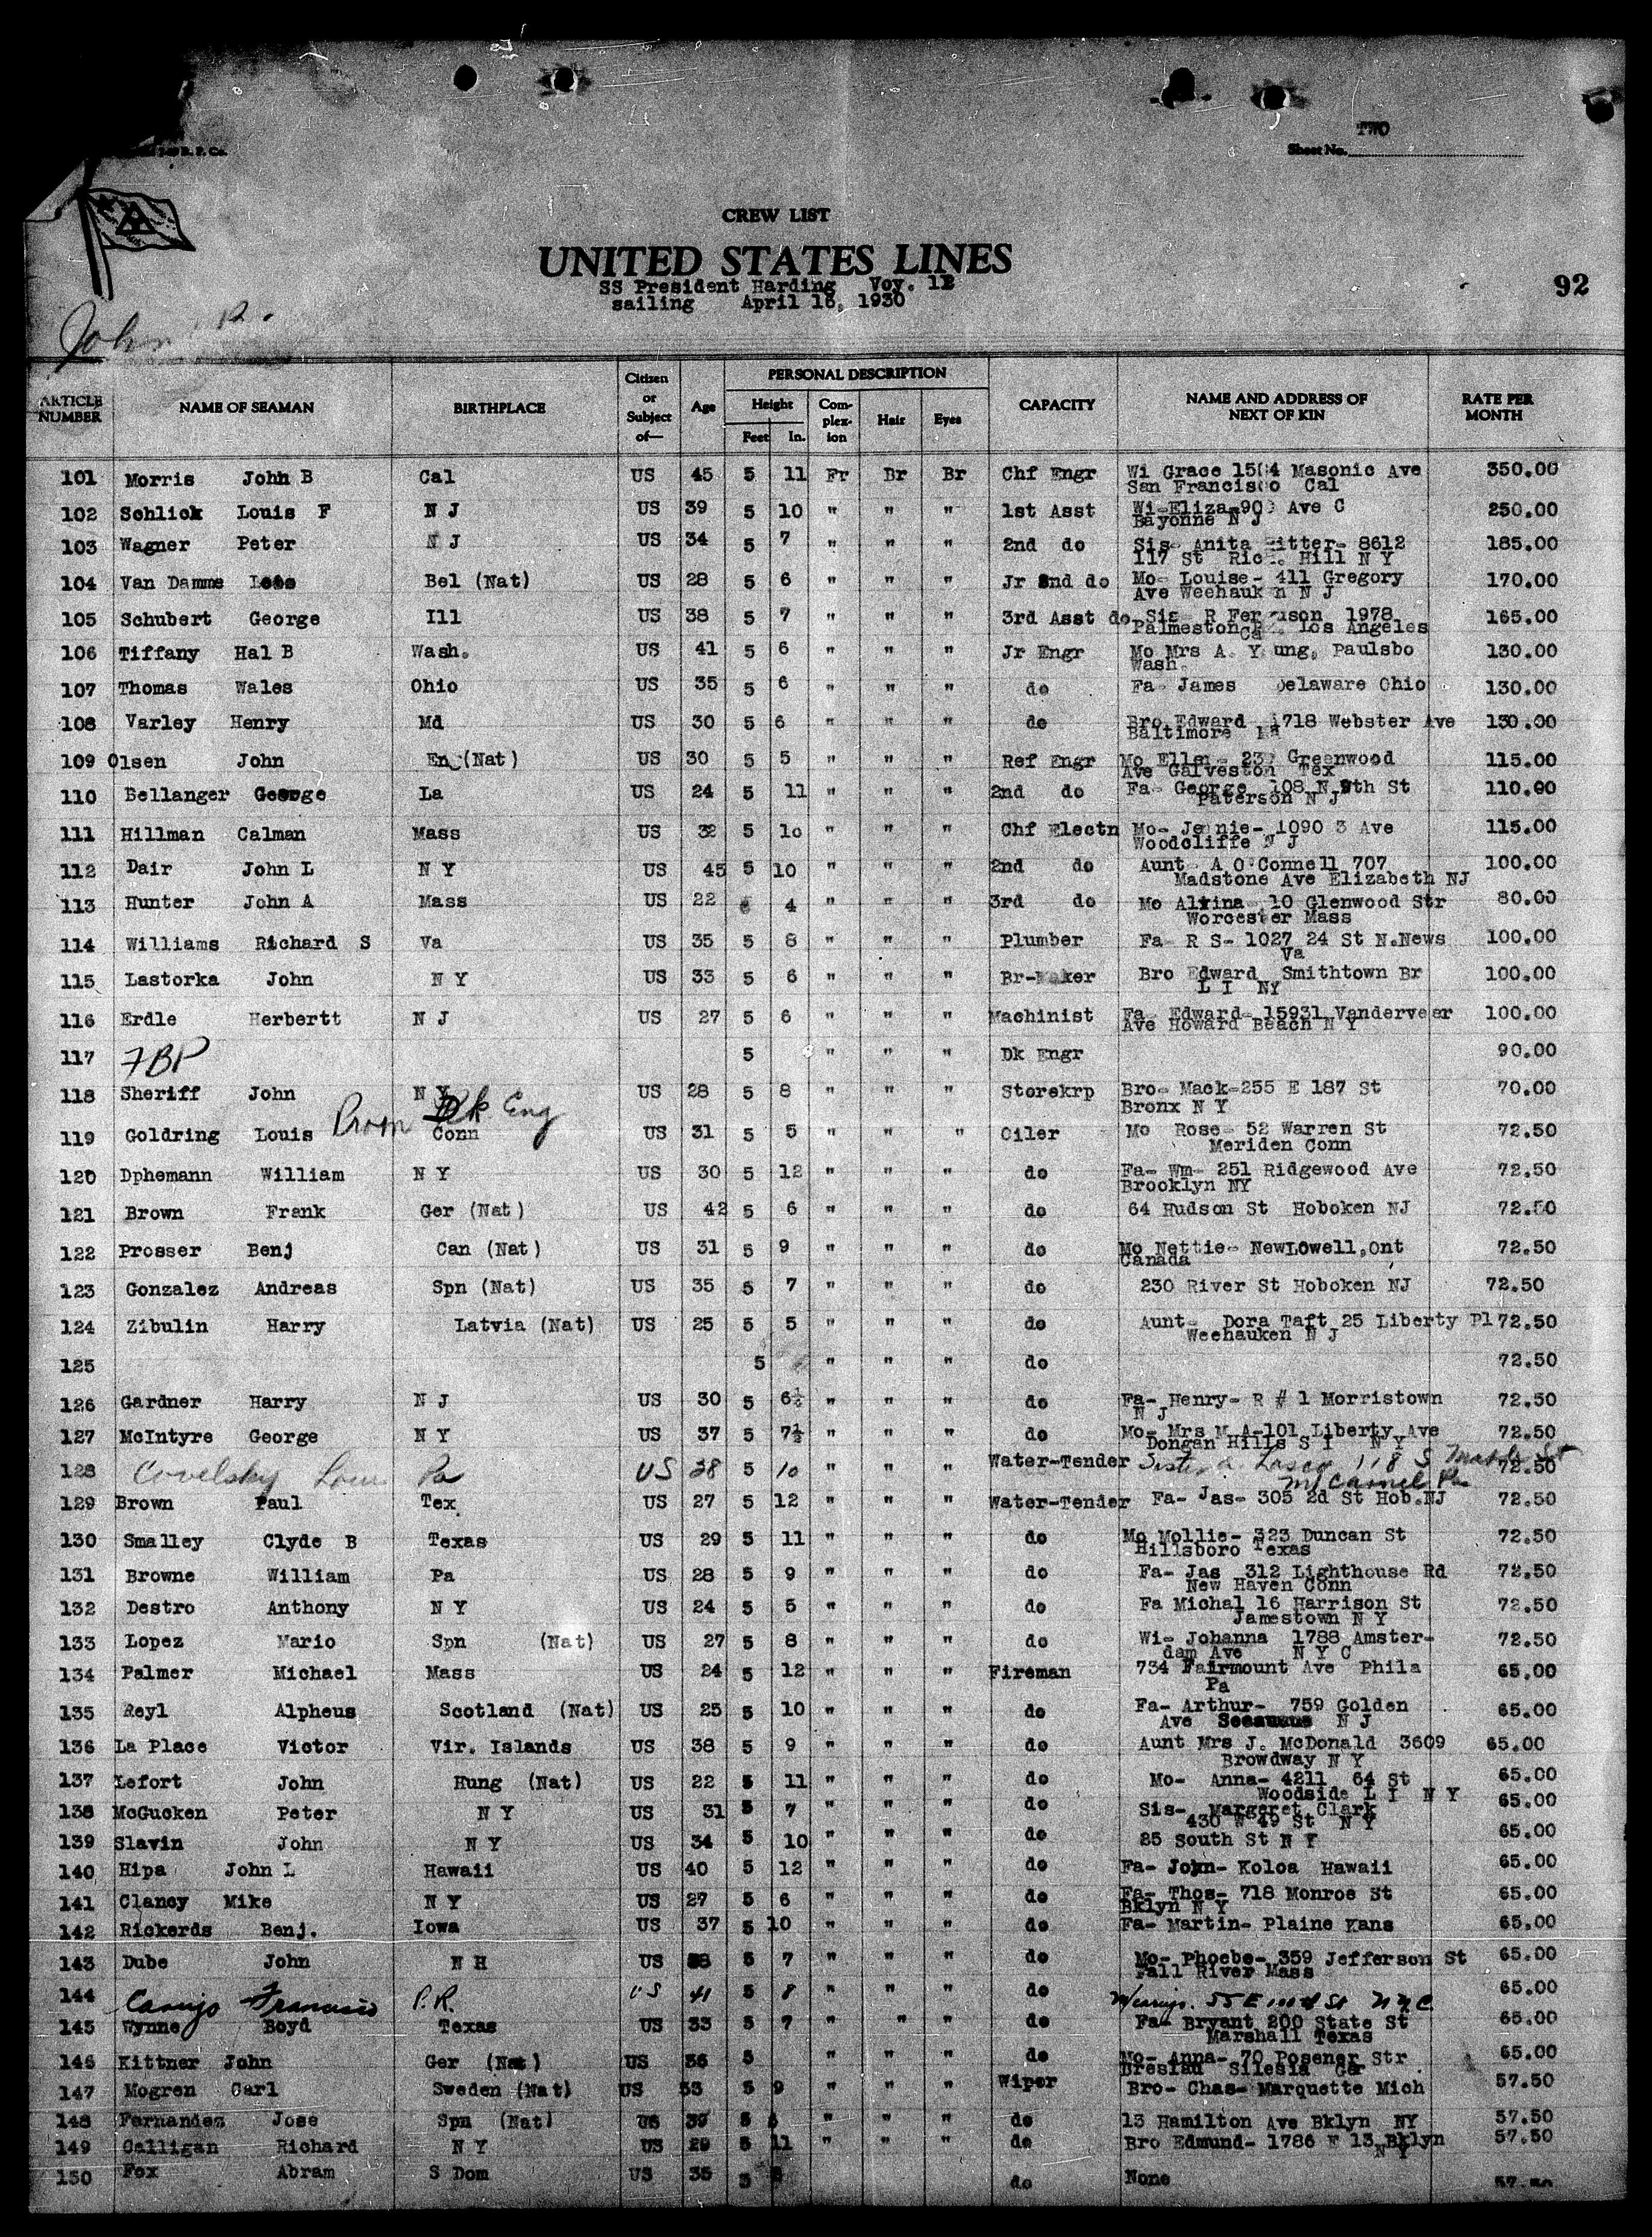 TWO
Sheet No.
CREW LIST
UNITED STATES LINES
SS President Harding Voy. 12
sailing April 16, 1930
92
John
ARTICLE NUMBER NAME OF SEAMAN BIRTHPLACE Citizen or Subject of— Age PERSONAL DESCRIPTION Height Feet In. Complexion Hair Eyes CAPACITY NAME AND ADDRESS OF NEXT OF KIN RATE PER MONTH
101 Morris John B Cal US 45 5 11 Fr Br Br Chf Engr Wi Grace Masonic Ave 350.00
San Francisco Cal
102 Schlick Louis F N J US 39 5 10 " " " 1st Asst Wi-Eliza- Ave C 250.00
Bayonne N J
103 Wagner Peter N J US 34 5 7 " " " 2nd do Sis- Anita 8612 185.00
117 St Rich. Hill N Y
104 Van Damme Bel (Nat) US 28 5 6 " " " Jr 2nd do Mo- Louise- 411 Gregory 170.00
Ave Weehauken N J
105 Schubert George Ill US 38 5 7 " " " 3rd Asst do Sis- R Ferguson 1978 165.00
Palmeston Los Angeles
106 Tiffany Hal B Wash. US 41 5 6 " " " Jr Engr Mo Mrs A. Young, Paulsbo 130.00
Wash.
107 Thomas Wales Ohio US 35 5 6 " " " do Fa- James Delaware Ohio 130.00
108 Varley Henry Md US 30 5 6 " " " do Bro Edward 1718 Webster Ave 130.00
Baltimore
109 Olsen John En (Nat) US 30 5 5 " " " Ref Engr Mo Ellen- Greenwood 115.00
Ave Galveston Tex
110 Bellanger George La US 24 5 11 " " " 2nd do Fa- George 108 N 9th St 110.00
Paterson N J
111 Hillman Calman Mass US 32 5 10 " " " Chf Electn Mo- Jennie- 1090 3 Ave 115.00
Woodcliffe N J
112 Dair John L N Y US 45 5 10 " " " 2nd do Aunt- A O'Connell 707 100.00
Madstone Ave Elizabeth NJ
113 Hunter John A Mass US 22 4 " " " 3rd do Mo 10 Glenwood Str 80.00
Worcester Mass
114 Williams Richard S Va US 35 5 8 " " " Plumber Fa- R S- 1027 24 St N.News 100.00
Va
115 Lastorka John N Y US 33 5 6 " " " Br-Maker Bro Edward Smithtown Br 100.00
L I NY
116 Erdle Herbertt N J US 27 5 6 " " " Machinist Fa- Edward- 15931 Vanderveer 100.00
Ave Howard Beach N Y
117 FBP 5 " " " Dk Engr 90.00
118 Sheriff John N Y US 28 5 8 " " " Storekrp Bro- Mack-255 E 187 St 70.00
Bronx N Y
Prom Dk Eng
119 Goldring Louis Conn US 31 5 5 " " " Oiler Mo Rose- 52 Warren St 72.50
Meriden Conn
120 Dphemann William N Y US 30 5 12 " " " do Fa- Wm- 251 Ridgewood Ave 72.50
Brooklyn NY
121 Brown Frank Ger (Nat) US 42 5 6 " " " do 64 Hudson St Hoboken NJ 72.50
122 Prosser Benj Can (Nat) US 31 5 9 " " " do Mo Nettie- NewLowell,Ont 72.50
Canada
123 Gonzalez Andreas Spn (Nat) US 35 5 7 " " " do 230 River St Hoboken NJ 72.50
124 Zibulin Harry Latvia (Nat) US 25 5 5 " " " do Aunt- Dora Taft 25 Liberty Pl 72.50
Weehauken N J
125 5 " " " do 72.50
126 Gardner Harry N J US 30 5 6½ " " " do Fa- Henry- R # 1 Morristown 72.50
N J
127 McIntyre George N Y US 37 5 7½ " " " do Mo- Mrs M A-101 Liberty Ave 72.50
Dongan Hills S I N Y
128 Covelsky Louis Pa US 28 5 10 " " " Water-Tender Sister 118 S St 72.50
Mt Carmel Pa
129 Brown Paul Tex US 27 5 12 " " " Water-Tender Fa- Jas- 305 2d St Hob.NJ 72.50
130 Smalley Clyde B Texas US 29 5 11 " " " do Mo Mollie- 323 Duncan St 72.50
Hillsboro Texas
131 Browne William Pa US 28 5 9 " " " do Fa- Jas 312 Lighthouse Rd 72.50
New Haven Conn
132 Destro Anthony N Y US 24 5 5 " " " do Fa Michal 16 Harrison St 72.50
Jamestown N Y
133 Lopez Mario Spn (Nat) US 27 5 8 " " " do Wi- Johanna 1788 Amster- 72.50
dam Ave N Y C
134 Palmer Michael Mass US 24 5 12 " " " Fireman 734 Fairmount Ave Phila 65.00
Pa
135 Reyl Alpheus Scotland (Nat) US 25 5 10 " " " do Fa- Arthur- 759 Golden 65.00
Ave N J
136 La Place Victor Vir. Islands US 38 5 9 " " " do Aunt Mrs J. McDonald 3609 65.00
Browdway N Y
137 Lefort John Hung (Nat) US 22 5 11 " " " do Mo- Anna- 4211 64 St 65.00
Woodside L I N Y
138 McGucken Peter N Y US 31 5 7 " " " do Sis- Margeret Clark 65.00
430 W 49 St N Y
139 Slavin John N Y US 34 5 10 " " " do 25 South St N Y 65.00
140 Hipa John L Hawaii US 40 5 12 " " " do Fa- John- Koloa Hawaii 65.00
141 Clancy Mike N Y US 27 5 6 " " " do Fa- Thos- 718 Monroe St 65.00
Bklyn N Y
142 Rickerds Benj. Iowa US 37 5 10 " " " do Fa- Martin- Plaine Kans 65.00
143 Dube John N H US 5 7 " " " do Mo- Phoebe- 359 Jefferson St 65.00
Fall River Mass
144 Francisco P.R. US 41 5 8 " " " do 55 E St N Y C 65.00
145 Wynne Boyd Texas US 33 5 7 " " " do Fa- Bryant 200 State St 65.00
Marshall Texas
146 Kittner John Ger (Nat) US 36 5 " " " do Mo- Anna- 70 Posener Str 65.00
Breslau Silesia Ger
147 Mogren Carl Sweden (Nat) US 53 5 9 " " " Wiper Bro- Chas- Marquette Mich 57.50
148 Fernandez Jose Spn (Nat) US 39 5 " " " do 13 Hamilton Ave Bklyn NY 57.50
149 Calligan Richard N Y US 29 5 11 " " " do Bro Edmund- 1786 E 13 Bklyn 57.50
N Y
150 Fox Abram S Dom US 35 5 do None